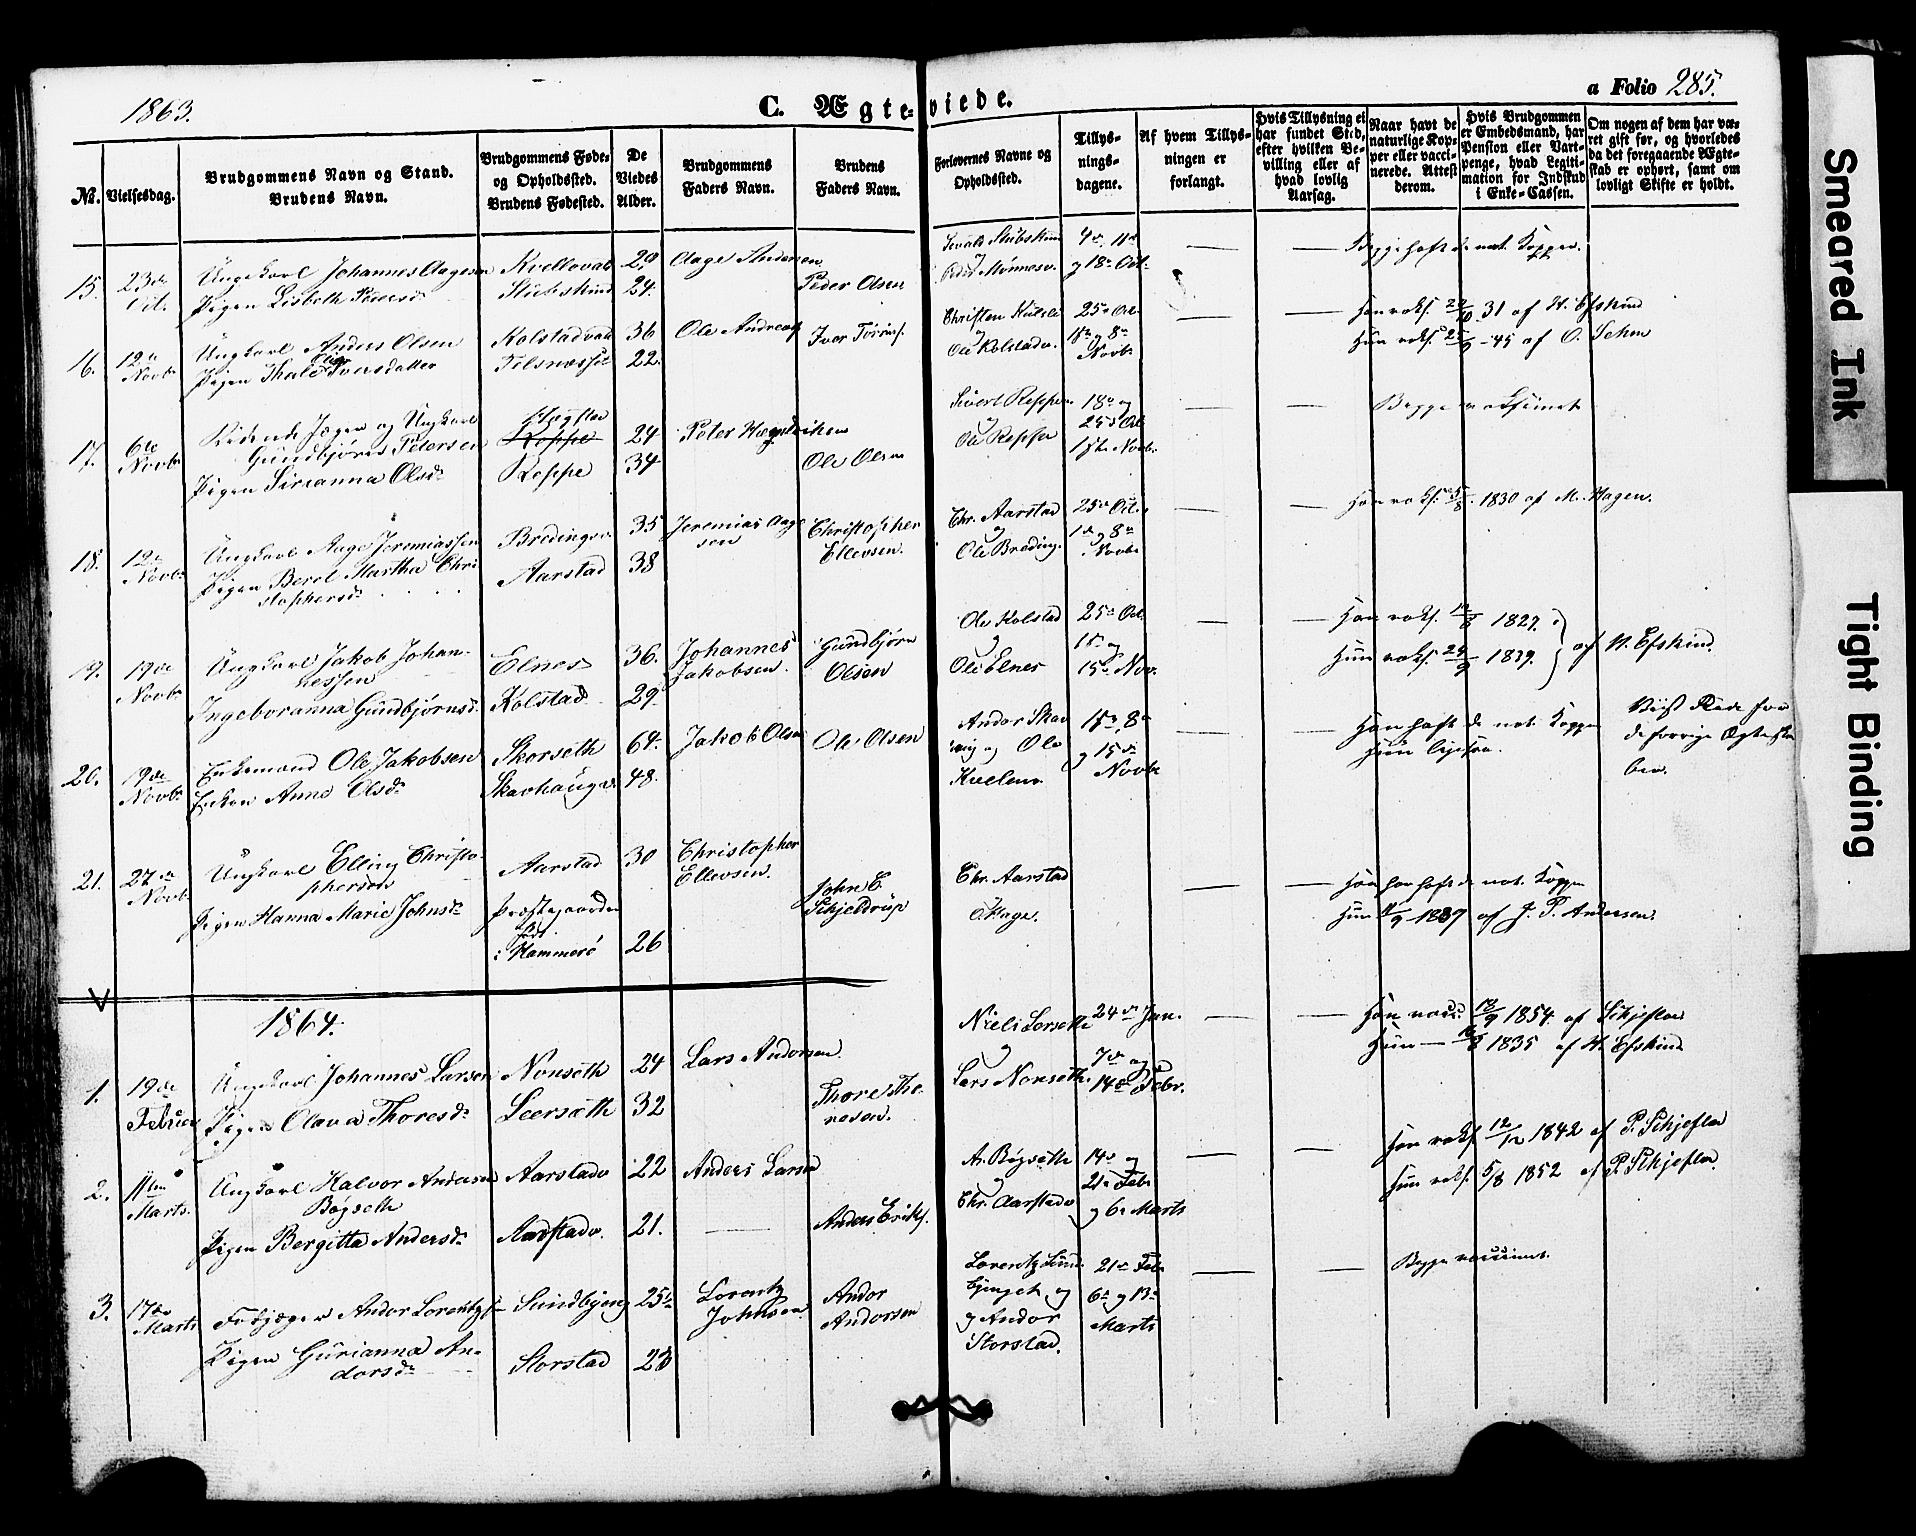 1863.
C. Ægteviede.
a Folio 285.
№.
Vielsesdag.
Brudgommens Navn og Stand.
Brudens Navn.
Brudgommens Føde-
og Opholdssted.
Brudens Fødested.
De
Viedes
Alder.
Brudgommens
Faders Navn.
Brudens
Faders Navn.
Forlovernes Navne og
Opholdssted.
Tillys-
nings-
dagene.
Af hvem Tillys-
ningen er
forlangt.
Hvis Tillysning ei
har fundet Sted,
efter hvilken Be-
villing eller af
hvad lovlig
Aarsag.
Naar havt de
naturlige Kop-
per eller vacci-
nerede. Attest
derom.
Hvis Brudgommen
er Embedsmand, har
Pension eller Vart-
penge, hvad Legiti-
mation for Indskud
i Enke-Cassen.
Om nogen af dem har væ-
ret gift før, og hvorledes
da det foregaaende Ægte-
skab er ophørt, samt om
lovligt Skifte er holdt.
15. 23de Oct.
Ungekarl Johannes Aagesen
Pigen Lisbeth Pedersd.
Kvellovald
Stubskind
24.
Aage Andersen
Peder Olsen
Sivald Stubskind
4de, 11te
og 18de Oct.
Begge haft de nat. Kopper.
16. 12te Novbr
Ungkarl Anders Olsen
Pigen Thale Iversdatter
36
22.
Ole Andreas
Christen
Ole Kolstadv.
25de Oct.
1ste og 8de
Novbr
Han vaks. 31 af H. Efskind
Hun vaks. 45 af O.
17. 6te Novbr
Ridende Jæger og Ungkarl
Gundbjørn Petersen
Pigen Sirianna Olsd.
Reppe
Reppe
24
34
Ole Olsen
Sivert Reppe
Ole Reppe
18de og
25de Oct
1ste Novbr.
Begge vaksineret
18. 12te Novbr
Ungkarl Aage Jeremiassen
Pigen Berel Martha Chri-
stophersd.
Bredingsv.
Aarstad
35
38
Jeremias Aage
sen
Christopher
Ellevsen.
Chr. Aarstad
og
Ole Breding.
25de Oct.
1ste og 8de
Novbr
Han vaks. 1830 af M. Hagen.
19. 19de Novbr
Ungkarl Jakob Johan-
nessen
Ingeboranna Gundbjørnsd.
Elnes
Kolstad
36.
29.
Johannes
Jakobsen.
Gundbjørn
Olsen
Ole Kolstad
og
Ole Elnes
25de Oct
1ste og
15de Nov.
Han vaks. 1827.
Hun vaks. 1839. } af H. Efskind.
20. 19de Novbr
Enkemand Ole Jakobsen
Enken Anne Olsd.
Skorseth
Skavhaugv.
64.
48.
Jakob Olsen
Ole Olsen
Andor Skav
haug og Ole
1ste, 8de
og 15de
Novbr
Han haft de nat. Kopper
Hun ligesaa.
21. 27de Novbr
Ungkarl Elling Christo-
phersen
Pigen Hanna Marie Johnsd.
Aarstad
Præstegaarden
født
i Hammerö
30
26
Christopher
Ellevsen.
John C.
Schjeldrup
Chr. Aarstad
C. Hage.
Han har haft de nat. Kopper
Hun 1837 af J. P. Andersen.
1864.
1. 19de Februar
Ungkarl Johannes Larsen
Pigen Olava Thoresd.
Nonseth
Leerseth
24
32
Lars Andersen.
Thore Tho-
resen.
Niels Lorseth
og
Lars Nonseth.
24de Jan.
7de og
14de Febr.
Han vacc. 1854. af Schjeflo
Hun — 1835 af H. Efskind
2. 11te Marts.
Ungkarl Halvor Andersen
Bøgseth
Pigen Bergitta Andersd.
Aarstadv
Aarstadv.
22
21.
Anders Larsen
Anders Eriks.
A. Bøgseth
og
Chr. Aarstadv
14de og
21de Febr
og 6te Marts
Han vaks. 12/12 1842 af P. Schjeflo
Hun vaks. 5/8 1852 af P. Schjeflo.
3. 17de Marts
Fodjæger Andor Lorentzs.
Pigen Gurianna An-
dorsd.
Sundbyeng
Storstad
25
23
Lorentz
Johnsen
Andor
Andorsen
Lorentz Sund
og Andor
Storstad.
21de Febr
6te og 13de
Marts
Begge vaccineret.
Smeared Ink
Tight Binding